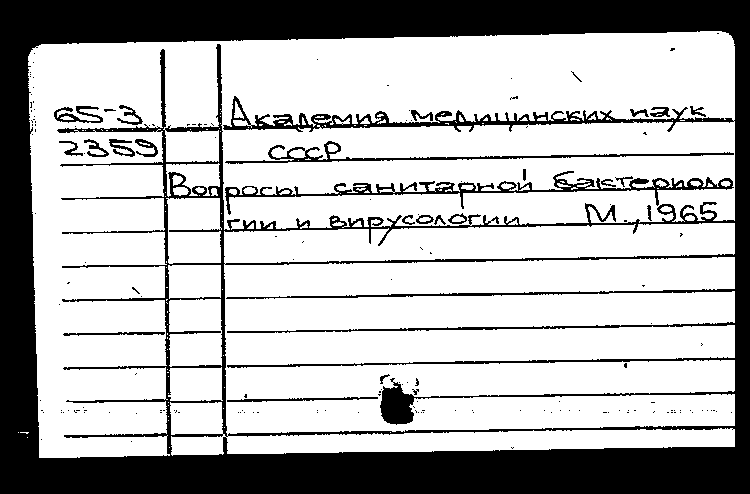 65-3 Академия медицинских наук
2359 СССР.
Вопросы санитарной бактериоло
гии и вирусологии М., 1965